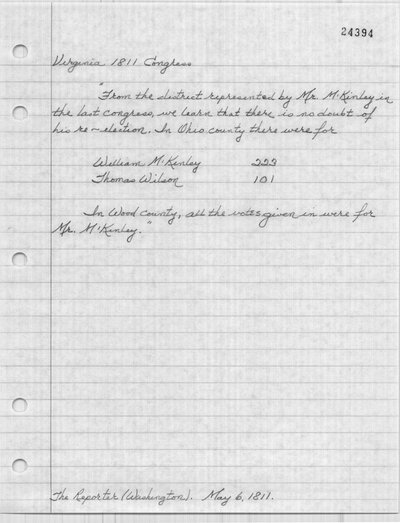 24394
Virginia 1811 Congress
"From the district represented by Mr. M'Kinley in
the last congress, we learn that there is no doubt of
his re-election. In Ohio county there were for
William M'Kinley 223
Thomas Wilson 101
In Wood county, all the votes given in were for
Mr. M'Kinley."
The Reporter (Washington). May 6, 1811.